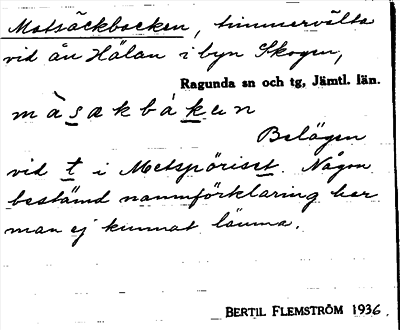 Matsäckbacken, timmervälta
vid ån Hälan i byn Skogen,
Ragunda sn och tg, Jämtl. län.
màsakbákɐn
Belägen
vid t i Metspöriset. Någon
bestämd namnförklaring har
man ej kunnat lämna.
BERTIL FLEMSTRÖM 1936.